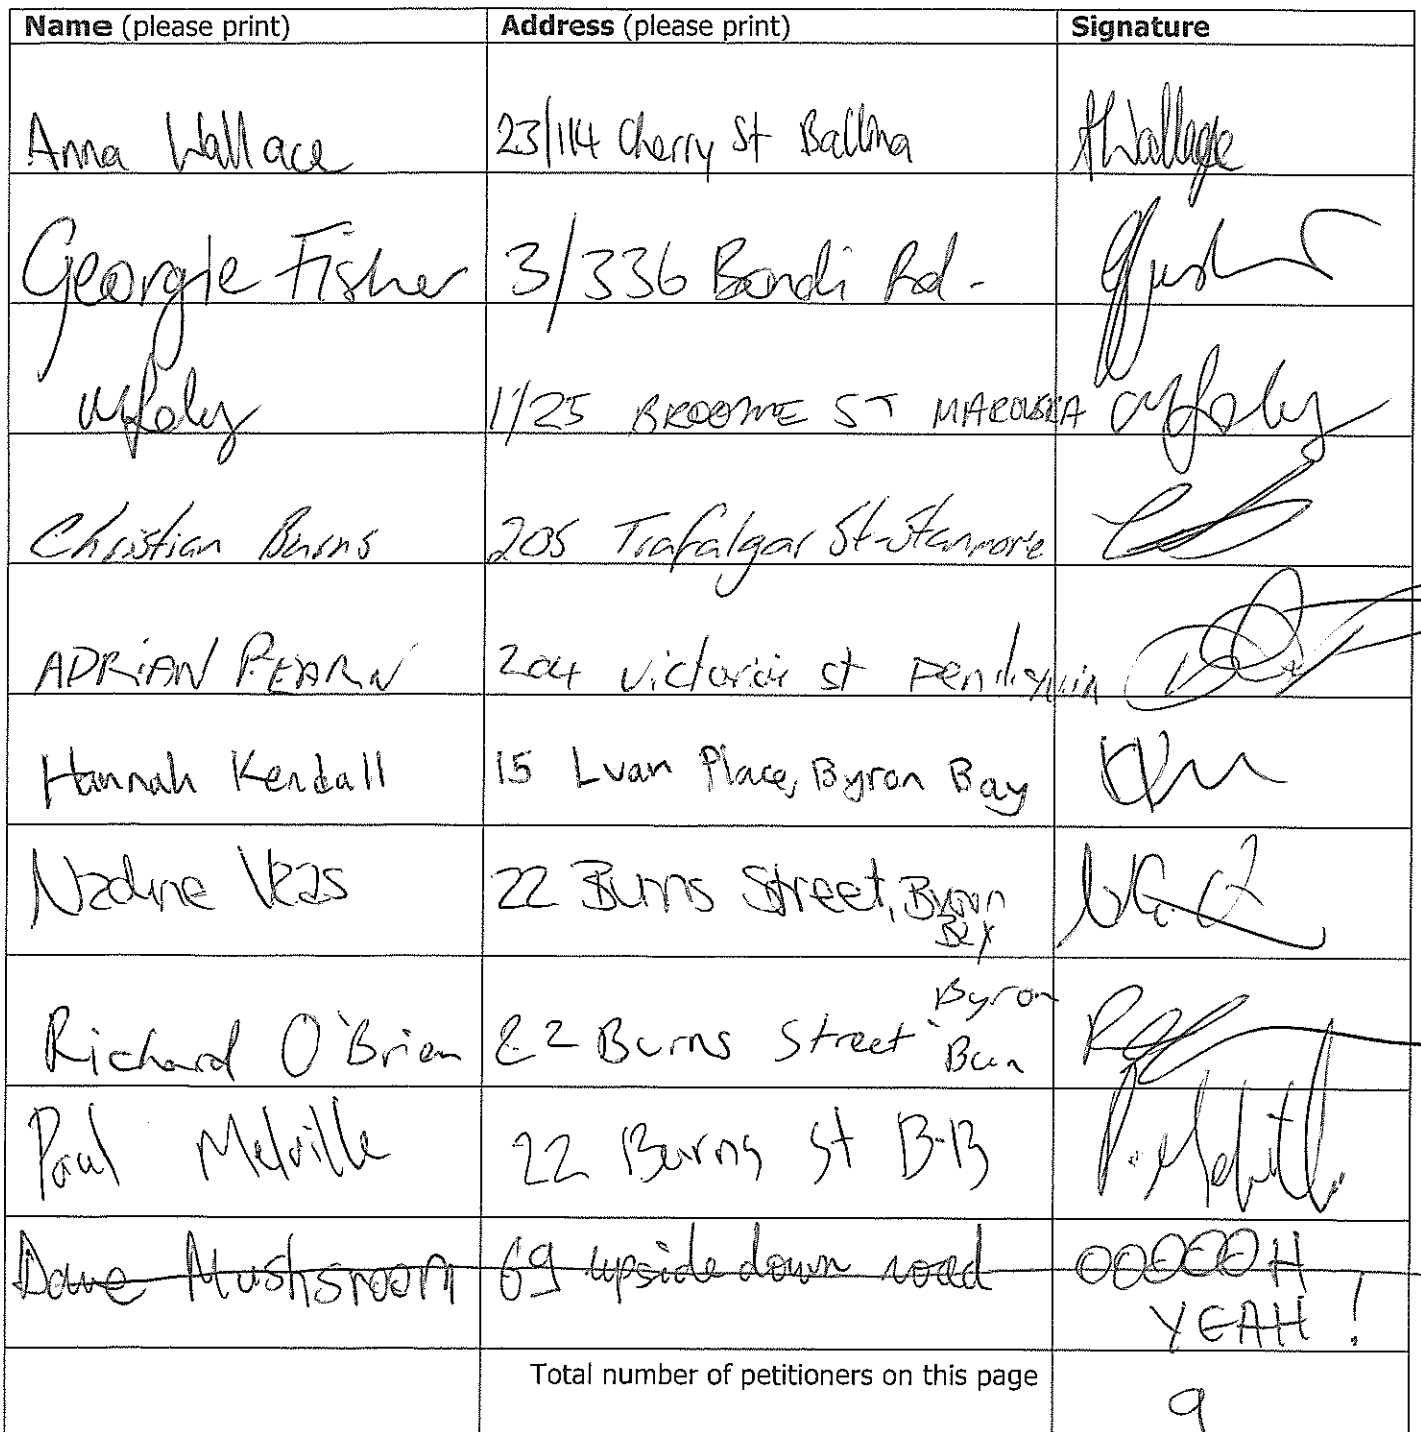 Name (please print) Address (please print) Signature
Anna Wallace 23/114 Cherry St Ballina AWallace
Georgie Fisher 3/336 Bondi Rd - GFisher
M Foley 1/25 BROOME ST MAROUBRA M Foley
Christian Burns 205 Trafalgar St-Stanmore
ADRIAN 204 Victoria st
Hannah Kendall 15 Luan Place, Byron Bay
Nadine Veas 22 Burns Street, Byron
Bay
Byron
Richard O'Brien 22 Burns Street
Paul Melville 22 Burns St B-B P. Melville
Dave Mushsroom 69 upside down road OOOOOH
YEAH!
Total number of petitioners on this page
9